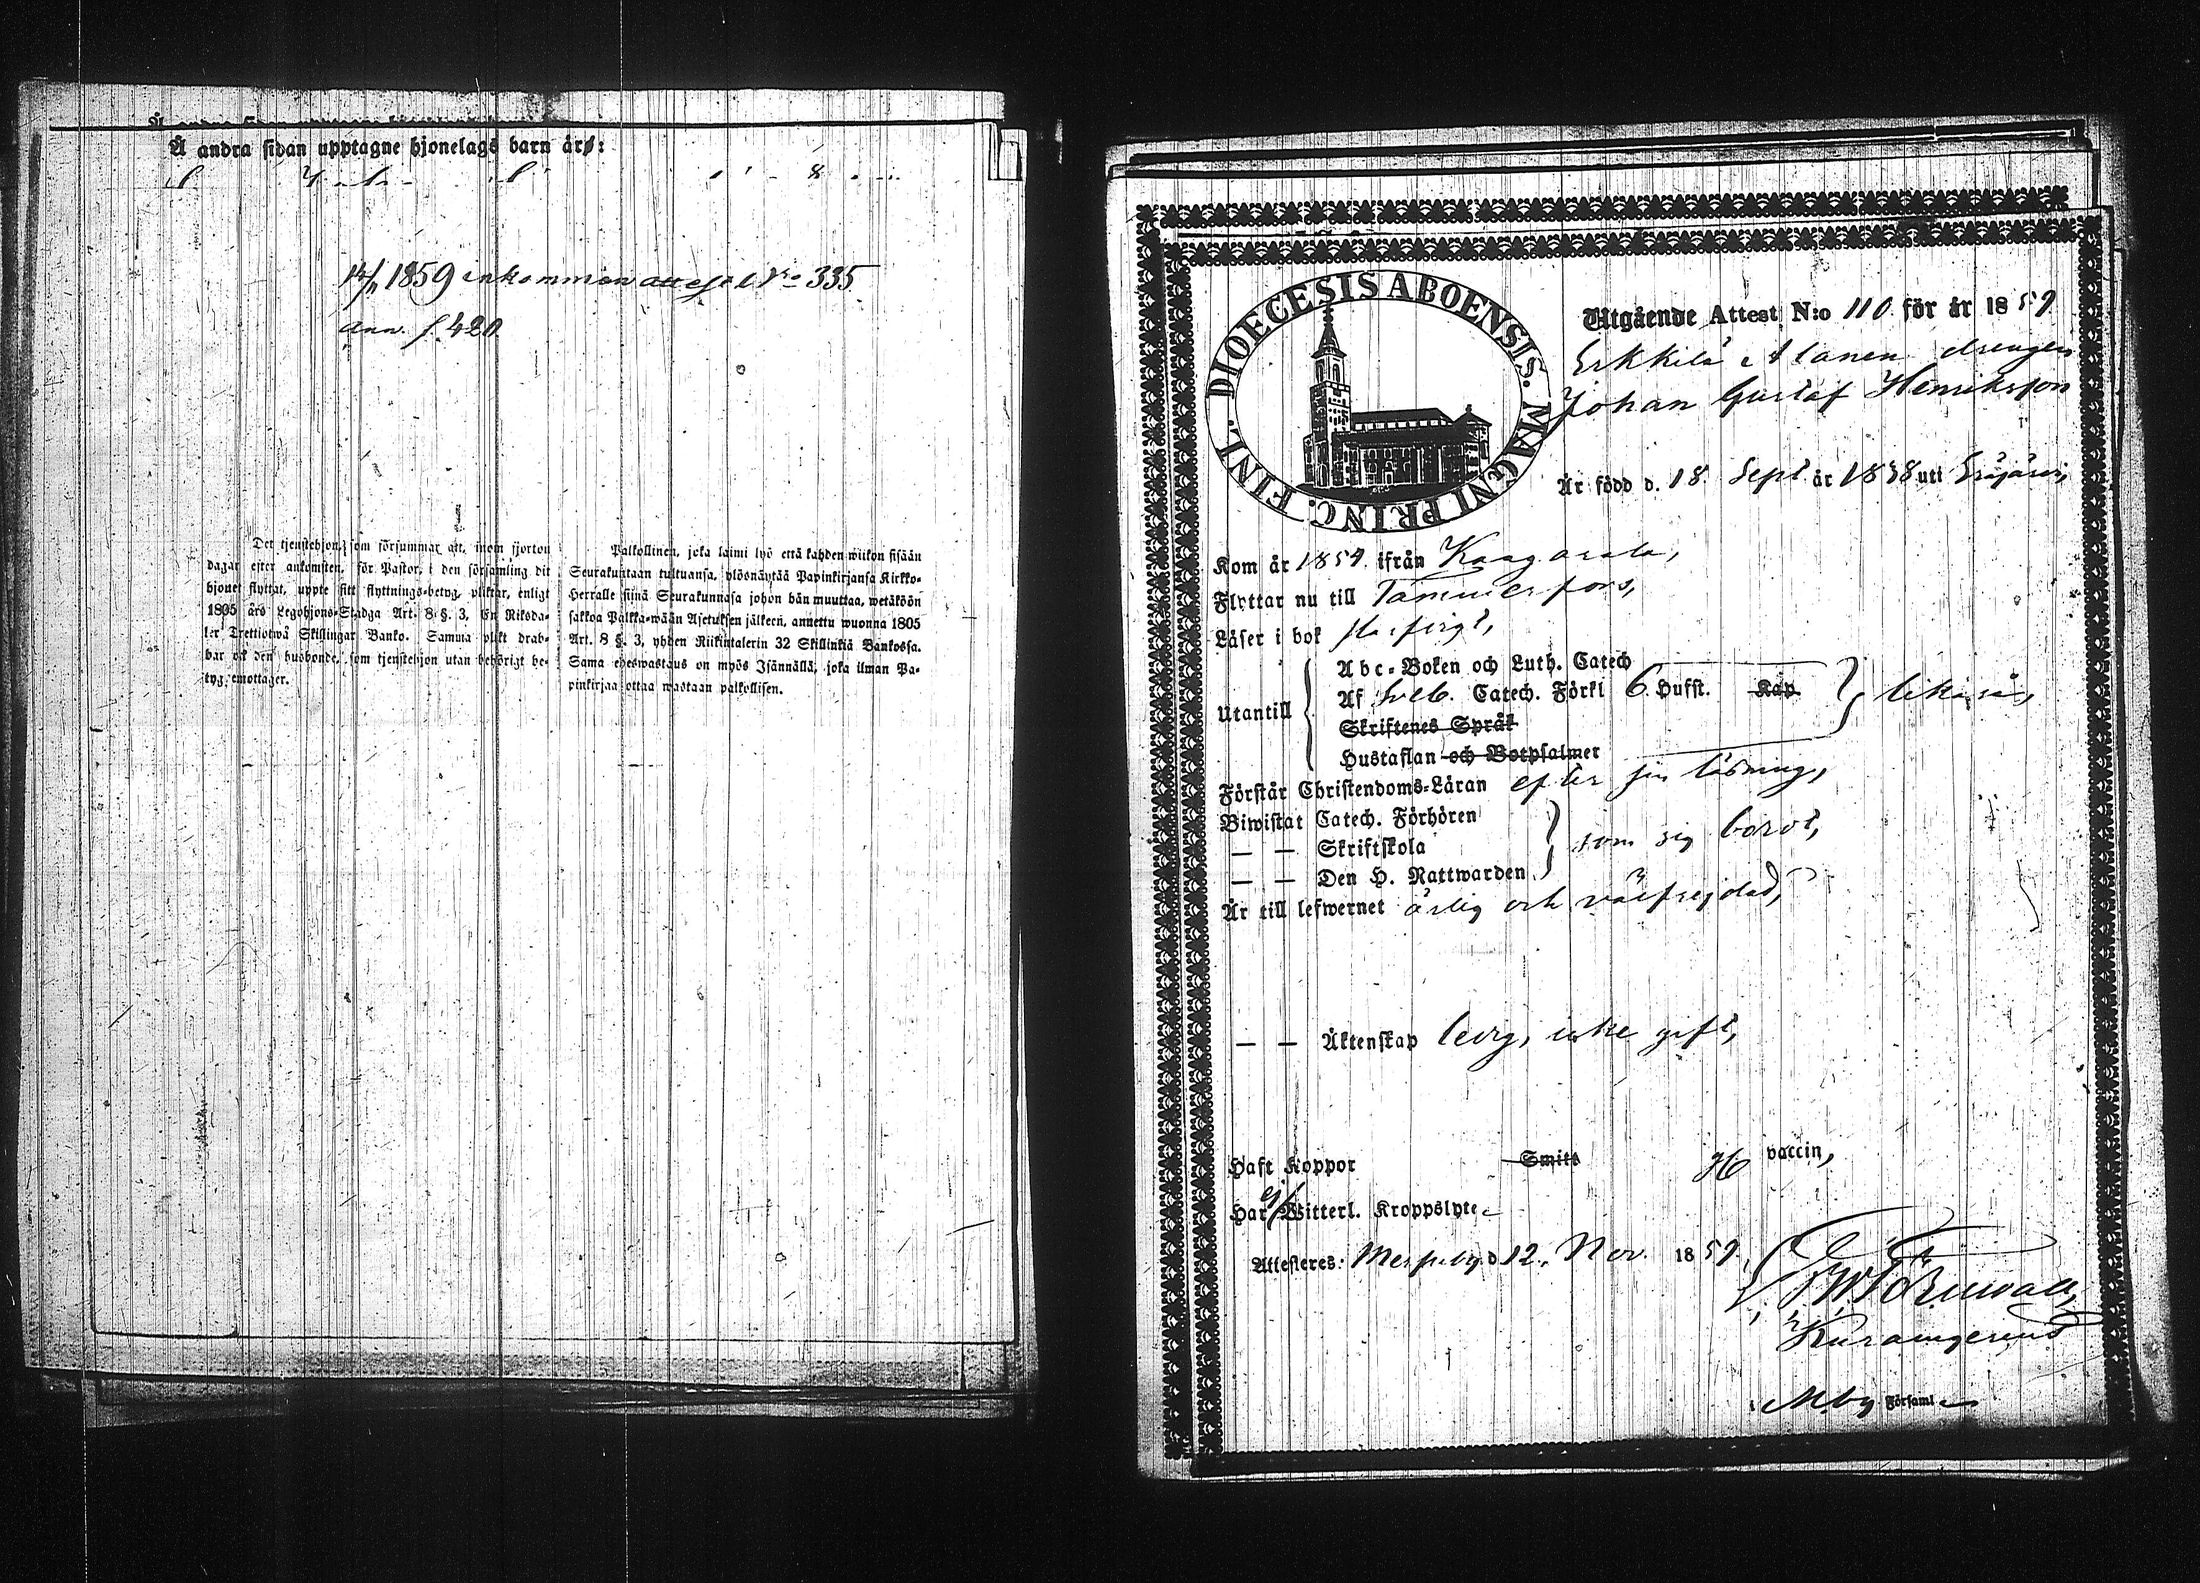 Å andra sidan upptagne hjonelags barn äro:
14/11 1859 inkommen attest No 335
Ann. f. 420
Det tjenstehjon, som försummar att, inom fjorton
dagar efter ankomsten, för Pastor, i den församling dit
hjonet flyttat, uppte sitt flyttnings-betyg, pliktar, enligt
1805 års Legohjons-Stadga Art. 8. §. 3, En Riksda-
ler Trettiotwå Skillingar Banko. Samma plikt drab-
bar ock den husbonde, som tjenstehjon utan behörigt be-
tyg emottager.
Palkollinen, joka laimi lyö että kahden wiikon sisään
Seurakuntaan tultuansa, ylösnäyttää Papinkirjansa Kirkko-
Herralle siinä Seurakunnasa johon hän muuttaa, wetäköön
sakkoa Palkka-wään Asetuksen jälkeen, annettu wuonna 1805
Art. 8 §. 3, yhden Riikintalerin 32 Skillinkiä Bankossa.
Sama edeswastaus on myös Isännällä, joka ilman Pa-
pinkirjaa ottaa wastaan palkollisen.
DIOECESIS ABOENSIS. MAGNI PRINC. FINL.
Utgående Attest N:o 110 för år 1859
Erkkilä Alanen drengen
Johan Gustaf Henriksson
Är född d. 18 Sept år 1838 uti Eräjärvi,
Kom år 1854 ifrån Kangasala,
Flyttar nu till Tammerfors,
Läser i bok
Abc-Boken och Luth. Catech
Utantill Af Sveb. Catech. Förkl 6 Hufst. Kap likaså,
Skriftenes Språk
Hustaflan och Botpsalmer
Förstår Christendoms-Läran efter sin läsning,
Biwistat Catech. Förhören
— — Skriftskola som sig bordt,
— — Den H. Nattwarden
Är till lefwernet ärlig och välfrejdad,
— — Äktenskap ledig, icke gift,
Haft Koppor Smitt vaccin,
Har ej Witterl. Kroppslyte
Attesteres: Messuby d 12. Nov. 1859.
Mby Församl